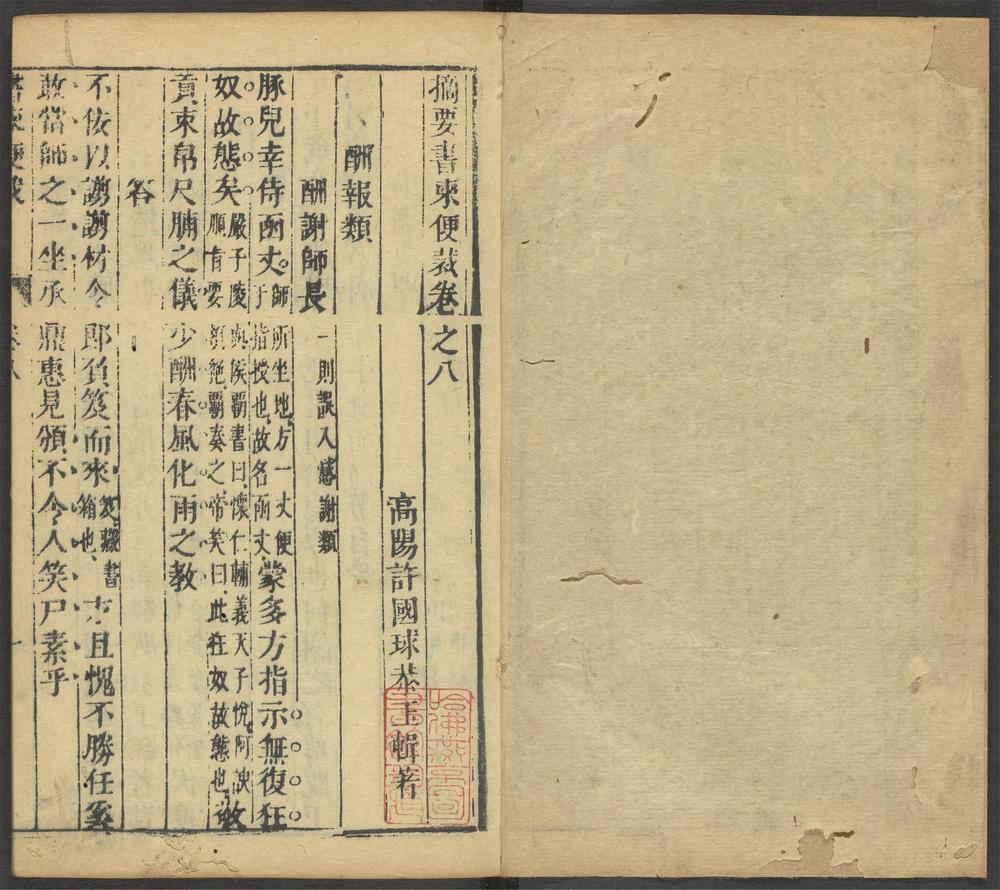 摘要書柬便蒙卷之八
高陽許國球 玉輯著
酬報類
酬謝師長 一則誤入感謝類
豚兒幸侍函丈師所坐地方一丈便于指授也故名函丈蒙多方指示無復狂
奴故態矣嚴子陵與侯霸書曰懷仁輔義天子悅阿諛順旨要領絕霸奏之帝笑曰此狂奴故態也敢
貢束帛尺脯之儀少酬春風化雨之教
答
不佞以謭謭材令郎負笈而來笈藏書箱也方且愧不勝任奚
敢當師之一坐承鼎惠見頒不令人笑尸素乎
書柬便蒙 卷八 一